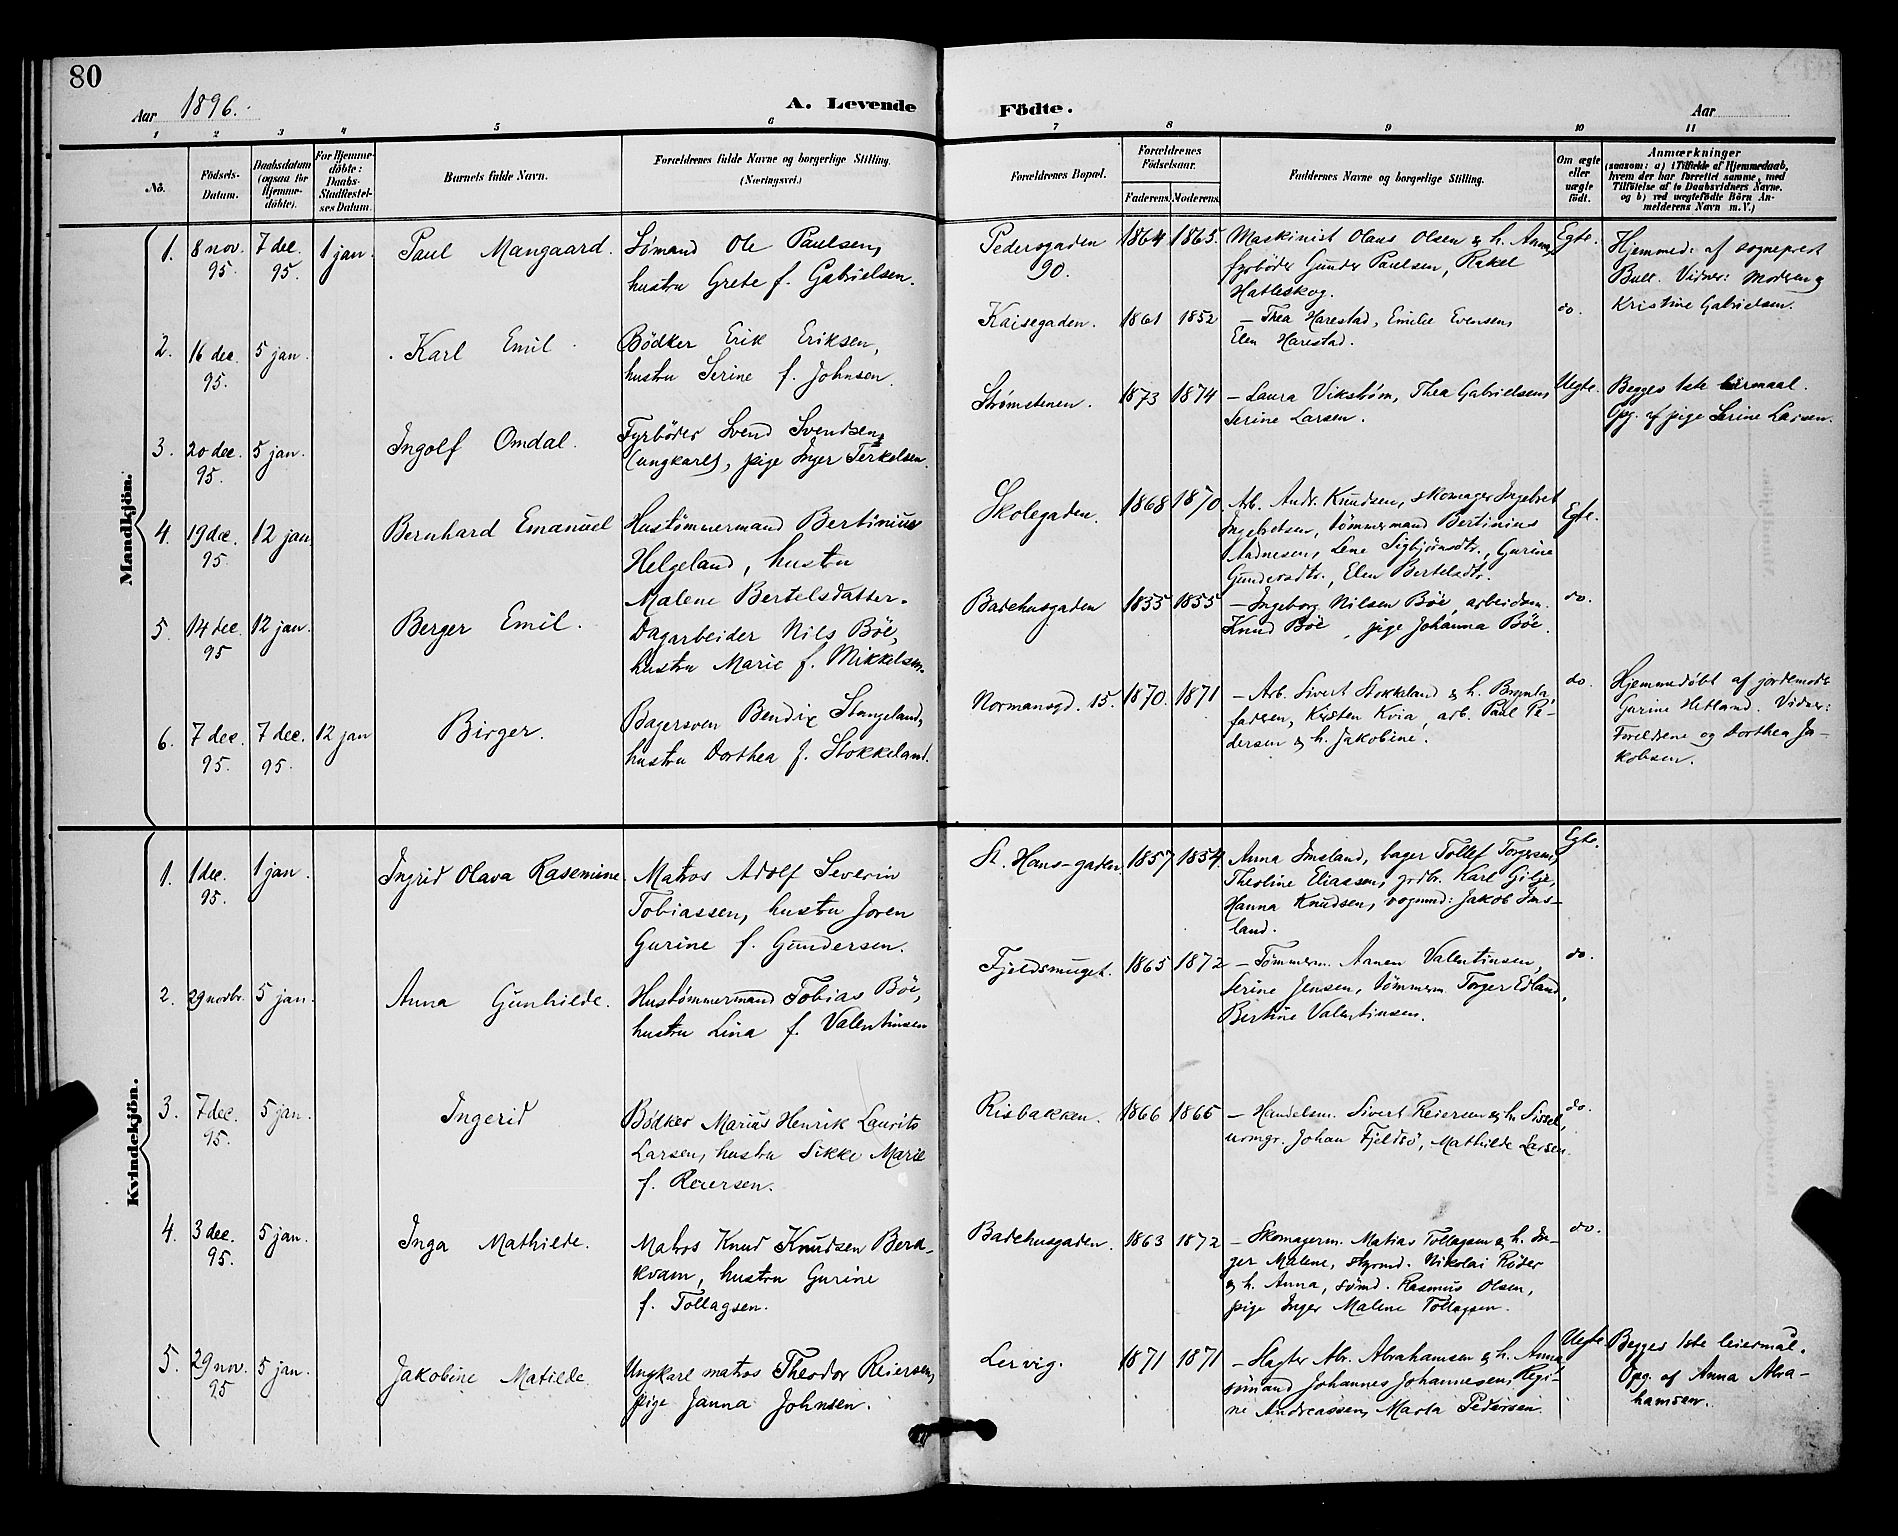 80
Aar 1896.
A. Levende Födte.
Aar
1 2 3 4 5 6 7 8 9 10 11
Nô.
Födsels-Datum.
Daabsdatum (ogsaa for Hjemme-döbte).
For Hjemme-döbte: Daabs-Stadfestel-ses Datum.
Barnets fulde Navn.
Forældrenes fulde Navne og borgerlige Stilling. (Næringsvei.)
Forældrenes Bopæl.
Forældrenes Födselsaar.
Faderens. Moderens.
Faddernes Navne og borgerlige Stilling.
Om ægte eller uægte födt.
Anmærkninger
(saasom: a) i Tilfælde af Hjemmedaab,
hvem der har forrettet samme, med
Tilföielse af to Daabsvidners Navne.
og b) ved uægtefödte Börn An-
melderens Navn m. V.)
Mandkjön.
1. 8 nov. 95. 7 dec. 95. 1 jan. Paul Mangaard.
Sømand Ole Paulsen,
hustru Grete f. Gabrielsen.
Pedersgaden 90. 1864 1865.
Maskinist Olaus Olsen & h. Anna,
fyrbøder Gunder Paulsen, Rakel
Hatleskog.
Egte.
Hjemmed: af sogneprest
Bull. Vidner: Moderen og
Kristine Gabrielsen.
2. 16 dec. 95. 5 jan. Karl Emil
Bødker Erik Eriksen,
hustru Serine f. Johnsen.
Kaisegaden. 1861 1852
– Thea Harestad, Emilie Evensen,
Elen Harestad.
do.
3. 20 dec. 95. 5 jan. Ingolf Omdal.
Fyrbøder Svend Svendsen,
(ungkarl), pige Inger Terkelsen.
Strømstenen. 1873 1874
– Laura Vikstrøm, Thea Gabrielsen,
Serine Larsen.
Uegte.
Begges 1ste leiermaal.
Opg. af pige Serine Larsen.
4. 19 dec. 95. 12 jan. Bernhard Emanuel
Hustømmermand Bertinius
Helgeland, hustru
Malene Bertelsdatter.
Skolegaden. 1868 1870.
Arb. Andr. Knudsen, skomager Ingebret
Ingebretsen, tømmermand Bertinius
Aadnesen, Lene Sigbjørnsdtr., Gurine
Gundersdtr., Elen Bertelsdtr.
Egte.
5. 14 dec. 95 12 jan. Berger Emil.
Dagarbeider Nils Bøe,
hustru Marie f. Mikkelsen.
Badehusgaden 1855 1855
– Ingeborg Nilsen Bøe, arbeidsm.
Knud Bøe, pige Johanna Bøe.
do.
6. 7 dec. 95. 7 dec. 95. 12 jan Birger.
Bagersven Bendix Stangeland,
hustru Dorthea f. Stokkeland.
Normansgd. 15. 1870. 1871
– Arb. Sivert Stokkeland & h. Brynla,
faderen, Kirsten Kvia, arb. Paul Pe-
dersen & h. Jakobine.
do.
Hjemmedøbt af jordemoder
Gurine Hetland. Vidner:
Foreldrene og Dorthea Ja-
kobsen.
Kvindekjön.
1. 1 dec. 95. 1 jan. Ingrid Olava Rasmine.
Matros Adolf Severin
Tobiassen, hustru Joren
Gurine f. Gundersen.
St. Hans-gaden 1857 1854.
Anna Imsland, bager Tollef Torgersen,
Theoline Eliassen, grdbr. Karl Gilje,
Hanna Knudsen, vognmd: Jakob Ims-
land.
Egte.
2. 29 novbr. 5 jan. Anna Gunhilde.
Hustømmermand Tobias Bøe,
hustru Lina f. Valentinsen
Fjeldsmuget. 1865 1872
– Tømmerm. Aanen Valentinsen,
Serine Jensen, tømmerm. Torger Edland,
Bertine Valentinsen.
do.
3. 7 dec. 95. 5 jan. Ingerid
Bødker Marius Henrik Laurits
Larsen, hustru Sikke Marie
f. Reiersen.
Risbakken. 1866 1865
– Handelsm. Sivert Reiersen & h. Sissel,
urmgr. Johan Fjeldsø, Mathilde Larsen.
do.
4. 3 dec. 95. 5 jan. Inga Mathilde.
Matros Knud Knudsen Berd-
kvam, hustru Gurine
f. Tollagsen.
Badehusgaden. 1863 1872
– Skomagerm. Matias Tollagsen & h. In-
ger Malene, styrmd. Nikolai Røder
& h. Anna, sømd. Rasmus Olsen,
pige Inger Malene Tollagsen.
do.
5. 29 nov. 95 5 jan. Jakobine Matilde.
Ungkarl matros Theodor Reiersen,
pige Janna Johnsen.
Lervig. 1871 1871
– Slagter Abr. Abrahamsen & h. Anna,
sømand Johannes Johannesen, Regi-
ne Andreassen, Marta Pedersen.
Uegte
Begges 1ste leiermaal.
Opg. af Anna Abra-
hamsen.